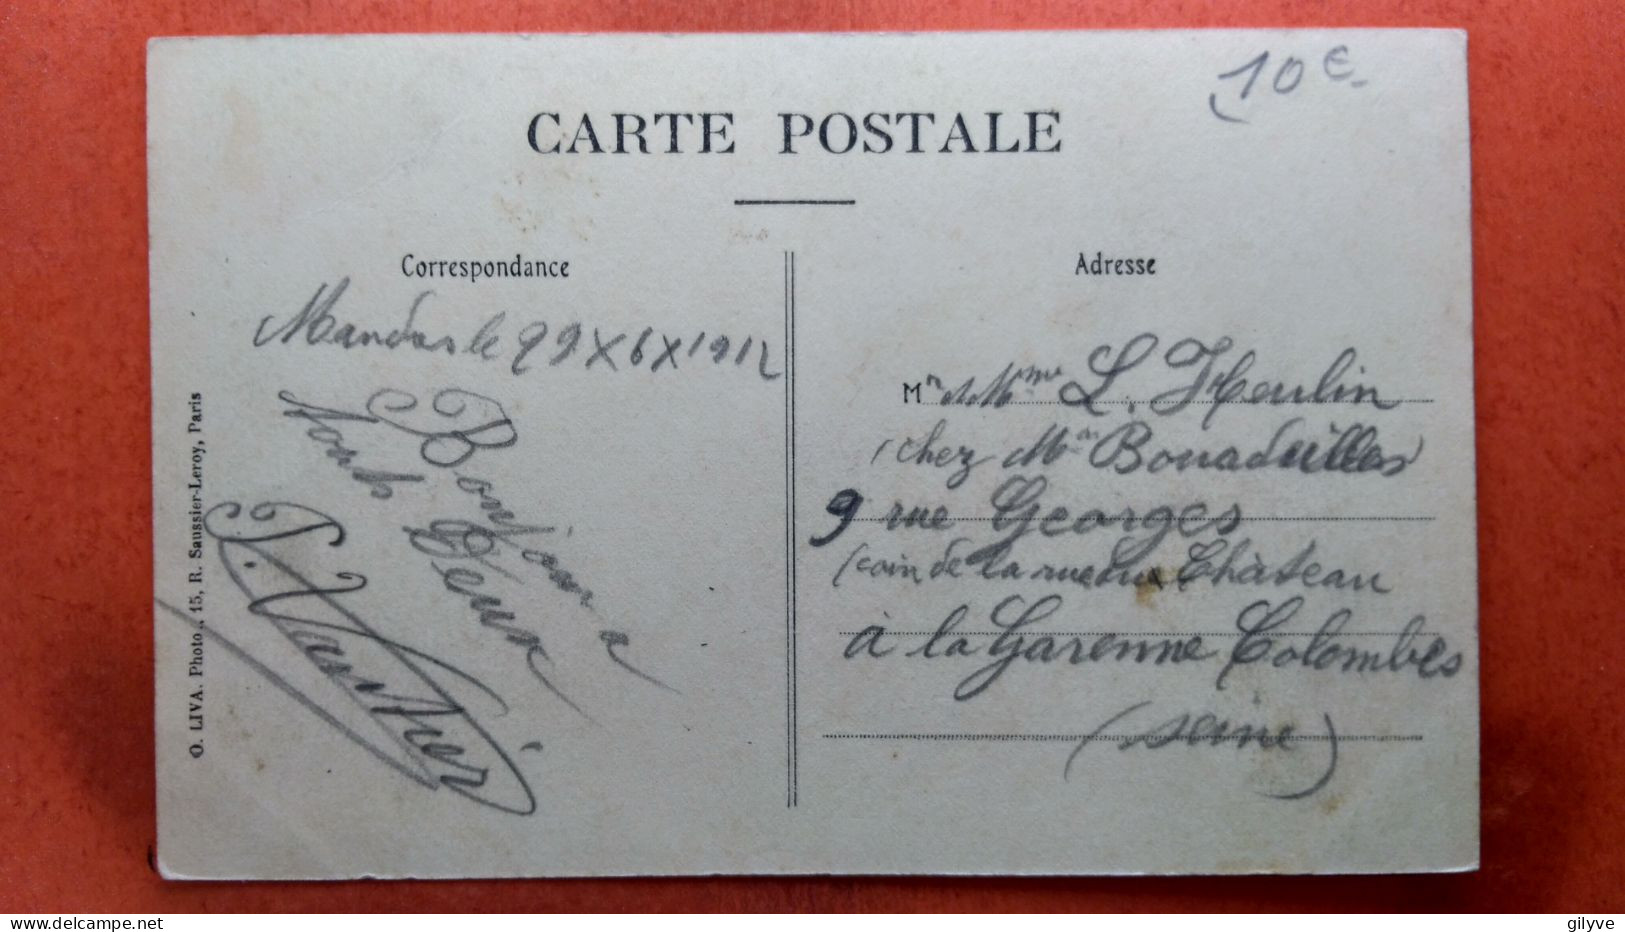 10 €
CARTE POSTALE
Correspondance
Adresse
le 29 X 6 X 1912
Bonjour à
tous deux
P. Vauthier
Mr & Mme L. Heulin
chez Mr
9 rue Georges
(coin de la rue du Château
à la Garenne Colombes
(Seine)
O. LIVA. Photo., 15, R. Saussier-Leroy, Paris
gilyve